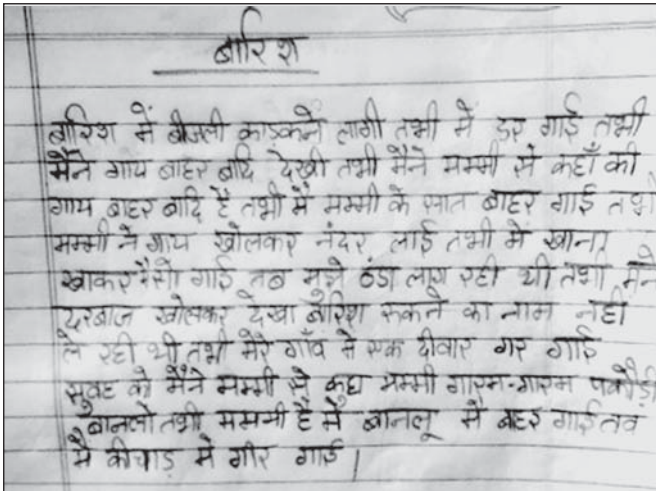 बारिश
बारिश में बीजली काडकने लागी तभी में डर गाई तभी
मैने गाय बाहर बादि देखी तभी मैने मम्मी से कहाँ की
गाय बाहर बादि है तभी मै मम्मी के सात बाहर गाई तभी
मम्मी ने गाय खोलकर नंदर लाई तभी मे खाना
खाकर सो गाई तब मुझे ठंडा लाग रही थी तभी मैने
दरबाज खोलकर देखा बारिश रुकने का नाम नही
ले रही थी तभी मेरे गाँव मे एक दीवार गर गाई
सुवह को मैंने मम्मी से कहा मम्मी गारम-गारम पकौड़ी
बानलो तभी मममी है मे बानलू मै बहर गाई तव
मै कीचाड़ मे गीर गाई।